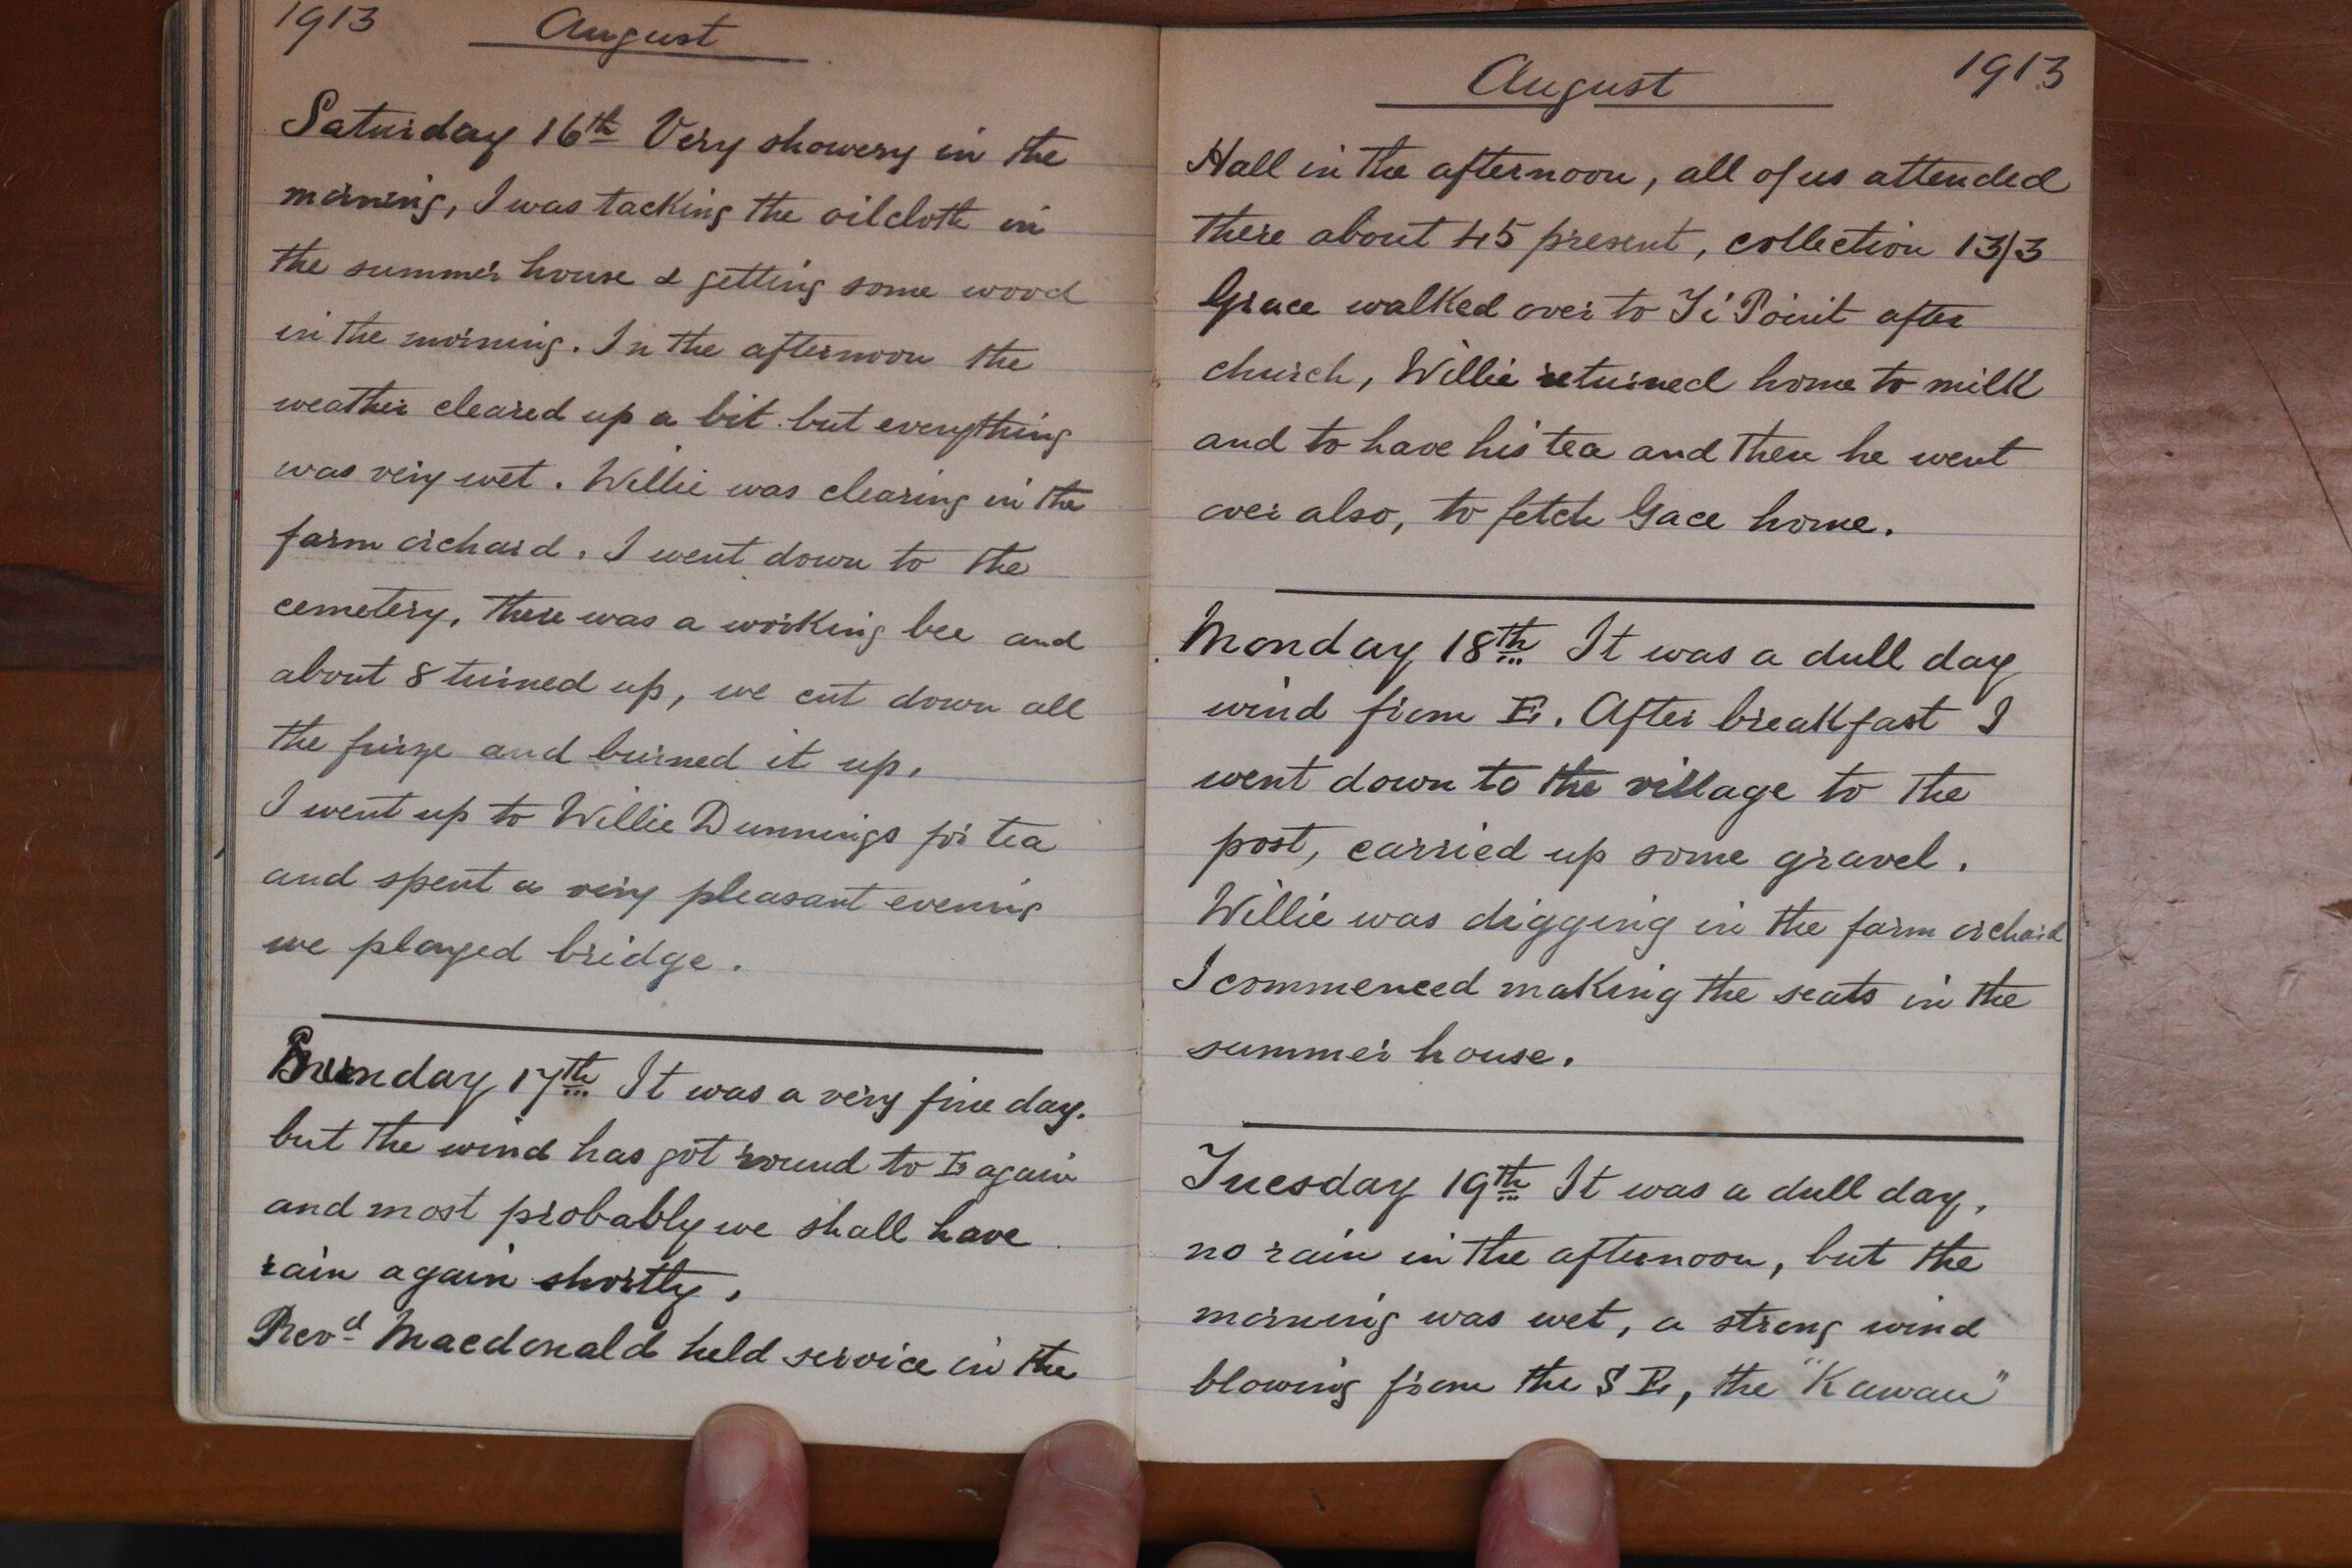 1913 August
Saturday 16th Very showery in the
morning, I was tacking the oilcloth in
the summer house & getting some wood
in the morning. In the afternoon the
weather cleared up a bit but everything
was very wet. Willie was clearing in the
farm orchard. I went down to the
cemetery, there was a working bee and
about 8 turned up, we cut down all
the furze and burned it up.
I went up to Willie Dunnings for tea
and spent a very pleasant evening
we played bridge.
Sunday 17th It was a very fine day.
but the wind has got round to E again
and most probably we shall have
rain again shortly.
Revd Macdonald held service in the
August 1913
Hall in the afternoon, all of us attended
there about 45 present, collection 13/3
Grace walked over to Ti Point after
church, Willie returned home to milk
and to have his tea and then he went
over also, to fetch Gace home.
Monday 18th It was a dull day
wind from E. After breakfast I
went down to the village to the
post, carried up some gravel.
Willie was digging in the farm orchard
I commenced making the seats in the
summer house.
Tuesday 19th It was a dull day,
no rain in the afternoon, but the
morning was wet, a strong wind
blowing from the S E, the "Kawau"